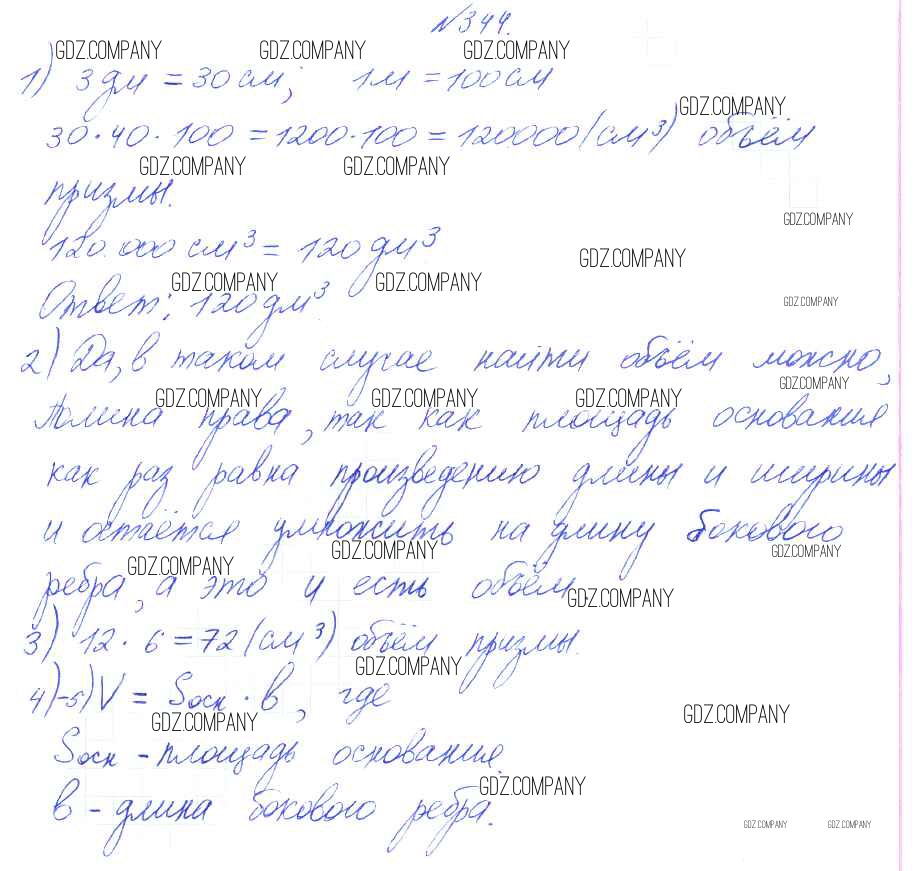 №344.
GDZ.COMPANY GDZ.COMPANY GDZ.COMPANY
1) 3 дм = 30 см; 1м = 100 см
GDZ.COMPANY
30·40·100 = 1200·100 = 120000 (см³) объём
GDZ.COMPANY GDZ.COMPANY
призмы.
GDZ.COMPANY
120.000 см³ = 120 дм³
GDZ.COMPANY
GDZ.COMPANY GDZ.COMPANY
Ответ: 120 дм³
GDZ.COMPANY
2) Да, в таком случае найти объём можно,
GDZ.COMPANY
GDZ.COMPANY GDZ.COMPANY GDZ.COMPANY
Полина права, так как площадь основания
как раз равна произведению длины и ширины
и остаётся умножить на длину бокового
GDZ.COMPANY GDZ.COMPANY
GDZ.COMPANY
ребра, а это и есть объём.
GDZ.COMPANY
3) 12·6 = 72 (см³) объём призмы.
GDZ.COMPANY
4)-5) V = Sосн · в, где
GDZ.COMPANY GDZ.COMPANY
Sосн - площадь основания
GDZ.COMPANY
в - длина бокового ребра.
GDZ.COMPANY GDZ.COMPANY